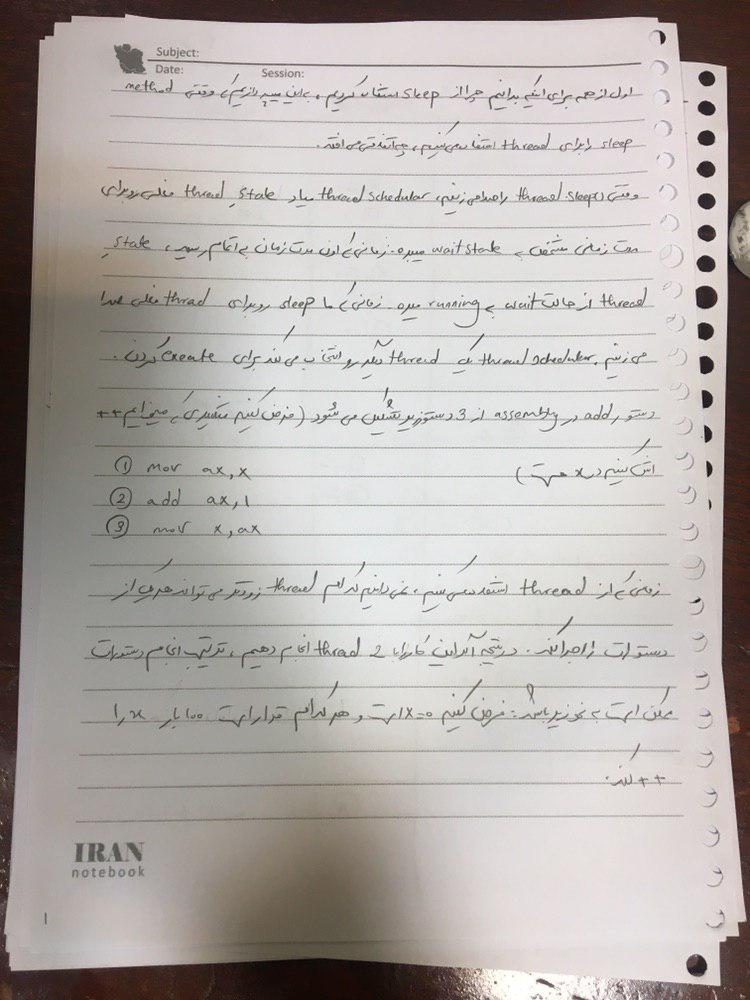 Subject:
Date: Session:
اول از همه برای اینکه بدانیم چرا از sleep استفاده کردیم، به این میپردازیم که وقتی method
sleep را برای thread استفاده می‌کنیم، چه اتفاقی می‌افتد.
وقتی thread.sleep() را صدا می‌زنیم، thread schedular میاد state ِ thread فعلی رو برای
مدت زمانی مشخص به wait state میبره. زمانی که اون مدت زمان به اتمام رسید، state ِ
thread از حالت wait به running میره. زمانی که ما sleep رو برای thread فعلی صدا
می‌زنیم، thread schedular یک thread دیگه رو انتخاب می‌کند برای execute کردن.
دستور add در assembly از 3 دستور زیر تشکیل می‌شود (فرض کنیم متغیری که میخوایم ++
اش کنیم در x هست)
① mov ax,x
② add ax,1
③ mov x,ax
زمانی که از thread استفاده می‌کنیم، نمی‌دانیم کدام thread زودتر می‌تواند هرکدام از
دستورات را اجرا کند. در نتیجه اگر این کار را با 2 thread انجام دهیم، ترتیب انجام دستورات
ممکن است به نحو زیر باشد: فرض کنیم x=0 است و هر کدام قرار است 100 بار x را
++ کند.
IRAN
notebook
1